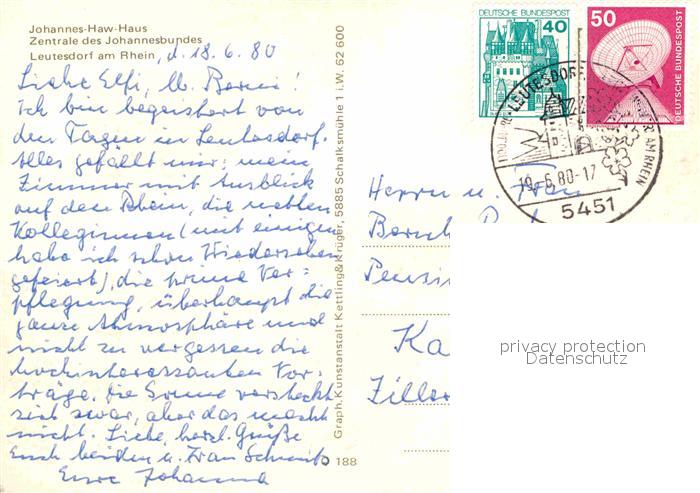 Johannes-Haw-Haus
Zentrale des Johannesbundes
Leutesdorf am Rhein, d. 18. 6. 80
Liebe Elfi, lb. Berni!
Ich bin begeistert von
den Tagen in Leutesdorf.
Alles gefällt mir: mein
Zimmer mit Ausblick
auf den Rhein, die netten
Kolleginnen (mit einigen
habe ich schon Wiedersehen
gefeiert), die prima Ver=
pflegung, überhaupt die
ganze Atmosphäre und
nicht zu vergessen die
hochinteressanten Vor=
träge. Die Sonne versteckt
sich zwar, aber das macht
nicht. Liebe, herzl. Grüße
Euch beiden u. Frau
Eure Johanna
Graph. Kunstanstalt Kettling & Krüger, 5885 Schalksmühle 1 i. W. 62 600
O 188
DEUTSCHE BUNDESPOST
40
50
DEUTSCHE BUNDESPOST
LEUTESDORF
AM RHEIN
19.-6.80-17
5451
Herrn u. Frau
Bernh
Pensi
Ka
Ziller
privacy protection
Datenschutz